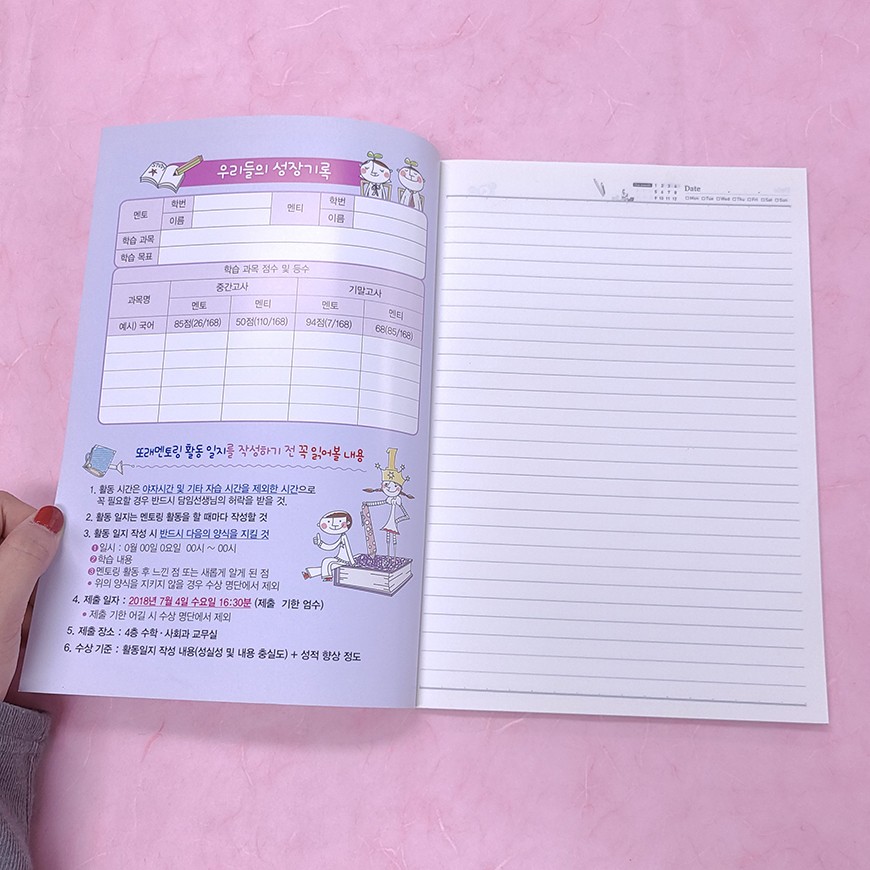 STUDY
우리들의 성장기록
멘토 학번 멘티 학번
이름 이름
학습 과목
학습 목표
학습 과목 점수 및 등수
과목명 중간고사 기말고사
멘토 멘티 멘토 멘티
예시) 국어 85점(26/168) 50점(110/168) 94점(7/168) 68(85/168)
또래멘토링 활동 일지를 작성하기 전 꼭 읽어볼 내용
1. 활동 시간은 야자시간 및 기타 자습 시간을 제외한 시간으로
꼭 필요할 경우 반드시 담임선생님의 허락을 받을 것.
2. 활동 일지는 멘토링 활동을 할 때마다 작성할 것
3. 활동 일지 작성 시 반드시 다음의 양식을 지킬 것
❶일시 : 0월 00일 0요일 00시 ~ 00시
❷학습 내용
❸멘토링 활동 후 느낀 점 또는 새롭게 알게 된 점
• 위의 양식을 지키지 않을 경우 수상 명단에서 제외
4. 제출 일자 : 2018년 7월 4일 수요일 16:30분 (제출 기한 엄수)
• 제출 기한 어길 시 수상 명단에서 제외
5. 제출 장소 : 4층 수학 · 사회과 교무실
6. 수상 기준 : 활동일지 작성 내용(성실성 및 내용 충실도) + 성적 향상 정도
1
1 2 3 4 Date
5 6 7 8
9 10 11 12 □Mon □Tue □Wed □Thu □Fri □Sat □Sun